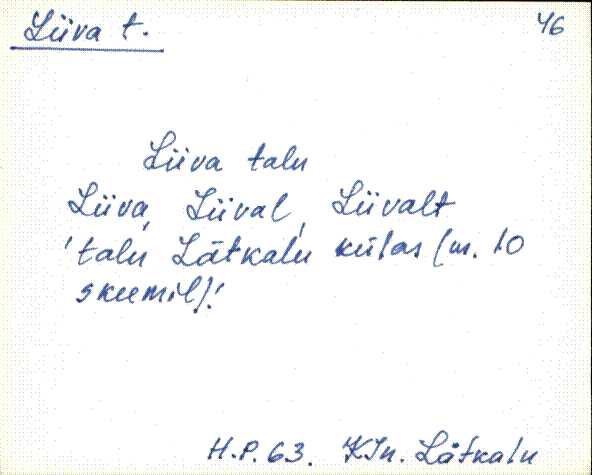 Liiva t.
46
Liiva talu
Liiva, Liival, Liivalt
'talu Lätkalu külas (nr. 10
skeemil).'
H.P. 63. KJn. Lätkalu